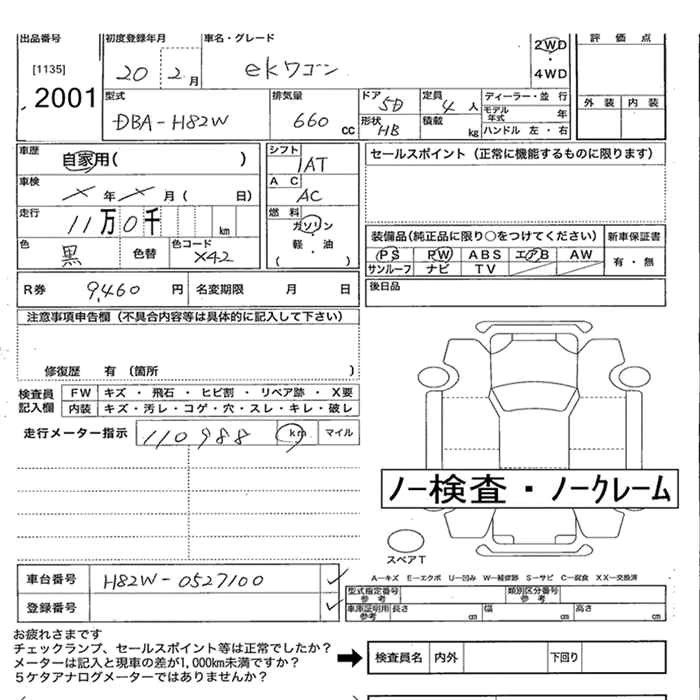 出品番号 初度登録年月 車名・グレード 2WD 評価点
[1135] 20 2月 ekワゴン 4WD
2001 型式 排気量 ドア 5D 定員 4人 ディーラー・並行 外装 内装
DBA-H82W 660cc 形状 HB 積載 kg モデル年式 年
ハンドル 左・右
車歴 自家用( ) シフト IAT セールスポイント(正常に機能するものに限ります)
車検 年 月( 日) AC AC
走行 11万0千 km 燃料 ガソリン 装備品(純正品に限り○をつけてください) 新車保証書
色 黒 色替 色コード X42 軽・油 PS PW ABS エアB AW 有・無
( ) サンルーフ ナビ TV
R券 9,460円 名変期限 月 日 後日品
注意事項申告欄(不具合内容等は具体的に記入して下さい)
修復歴 有(箇所 )
検査員記入欄 FW キズ・飛石・ヒビ割・リペア跡・X要
内装 キズ・汚レ・コゲ・穴・スレ・キレ・破レ
走行メーター指示 110988 km マイル
ノー検査・ノークレーム
スペアT
車台番号 H82W-0527100 A-キズ E-エクボ U-凹み W-補修跡 S-サビ C-腐食 XX-交換済
型式指定番号 参考 類別区分番号 参考
登録番号 車庫証明用 参考 長さ cm 幅 cm 高さ cm
お疲れさまです
チェックランプ、セールスポイント等は正常でしたか?
メーターは記入と現車の差が1,000km未満ですか? 検査員名 内外 下回り
5ケタアナログメーターではありませんか?